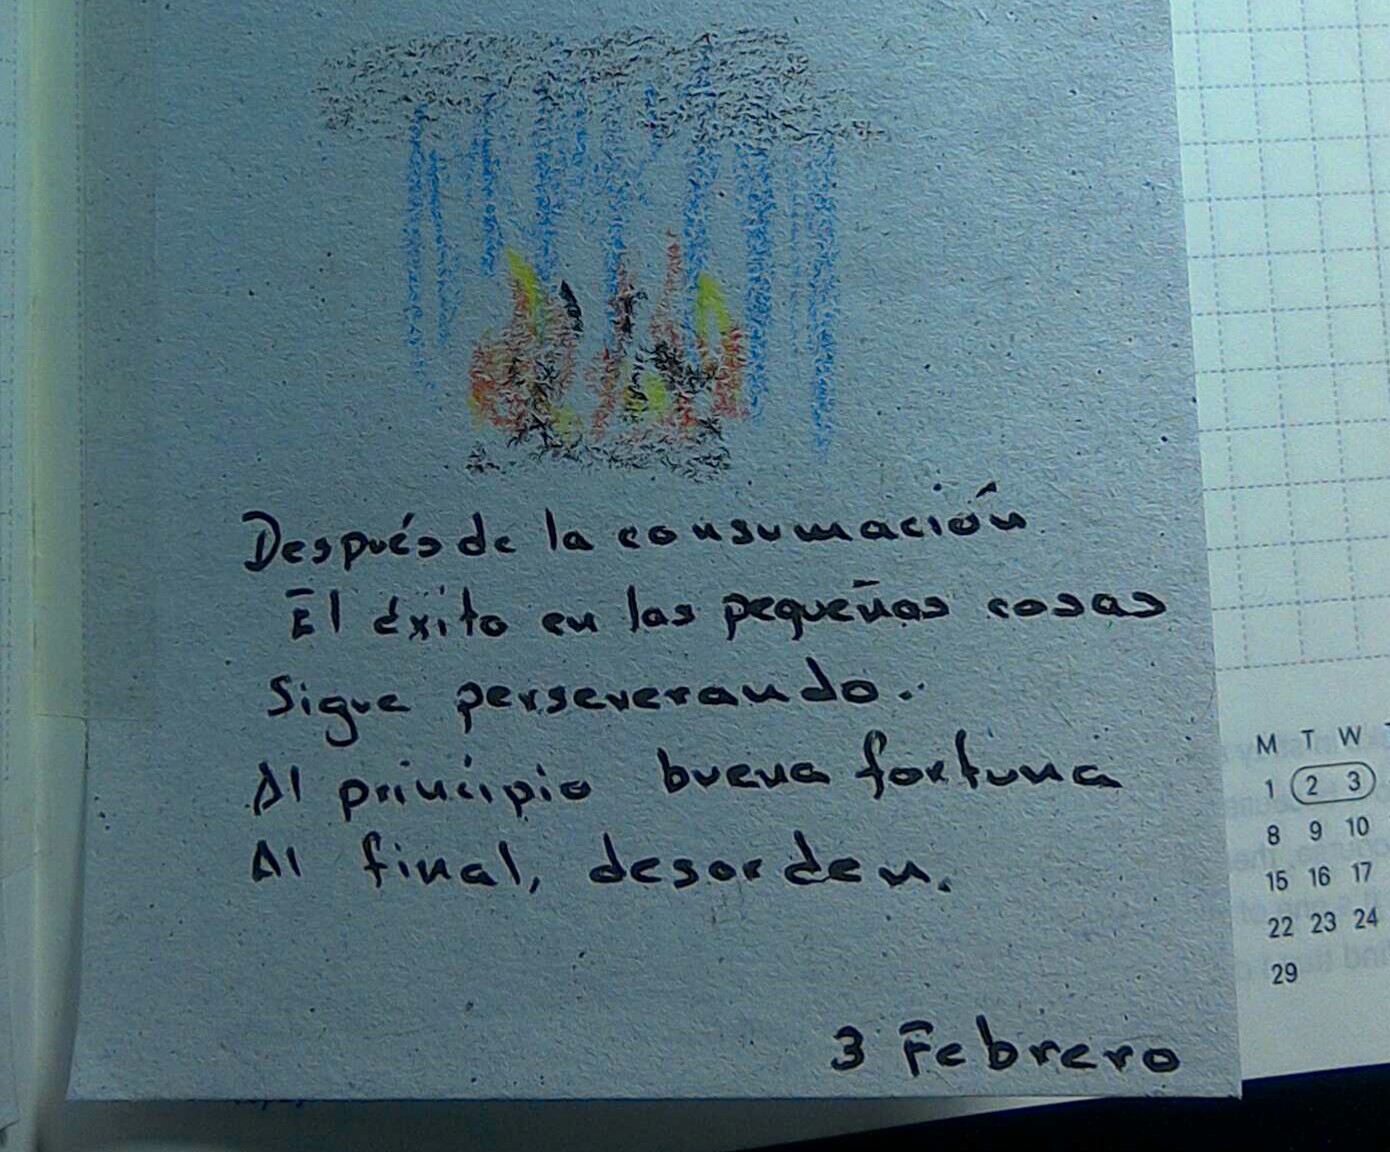 Después de la consumación
El éxito en las pequeñas cosas
Sigue perseverando.
Al principio buena fortuna
Al final, desorden.
3 Febrero
M T W
1 2 3
8 9 10
15 16 17
22 23 24
29